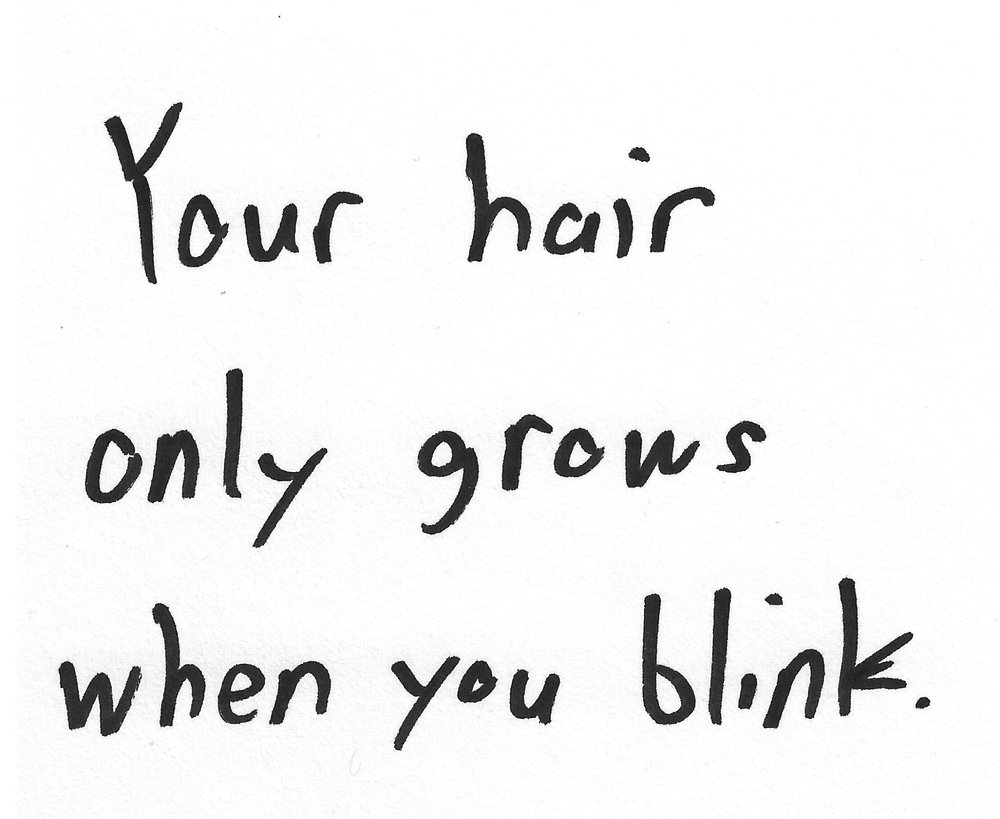 Your hair
only grows
when you blink.